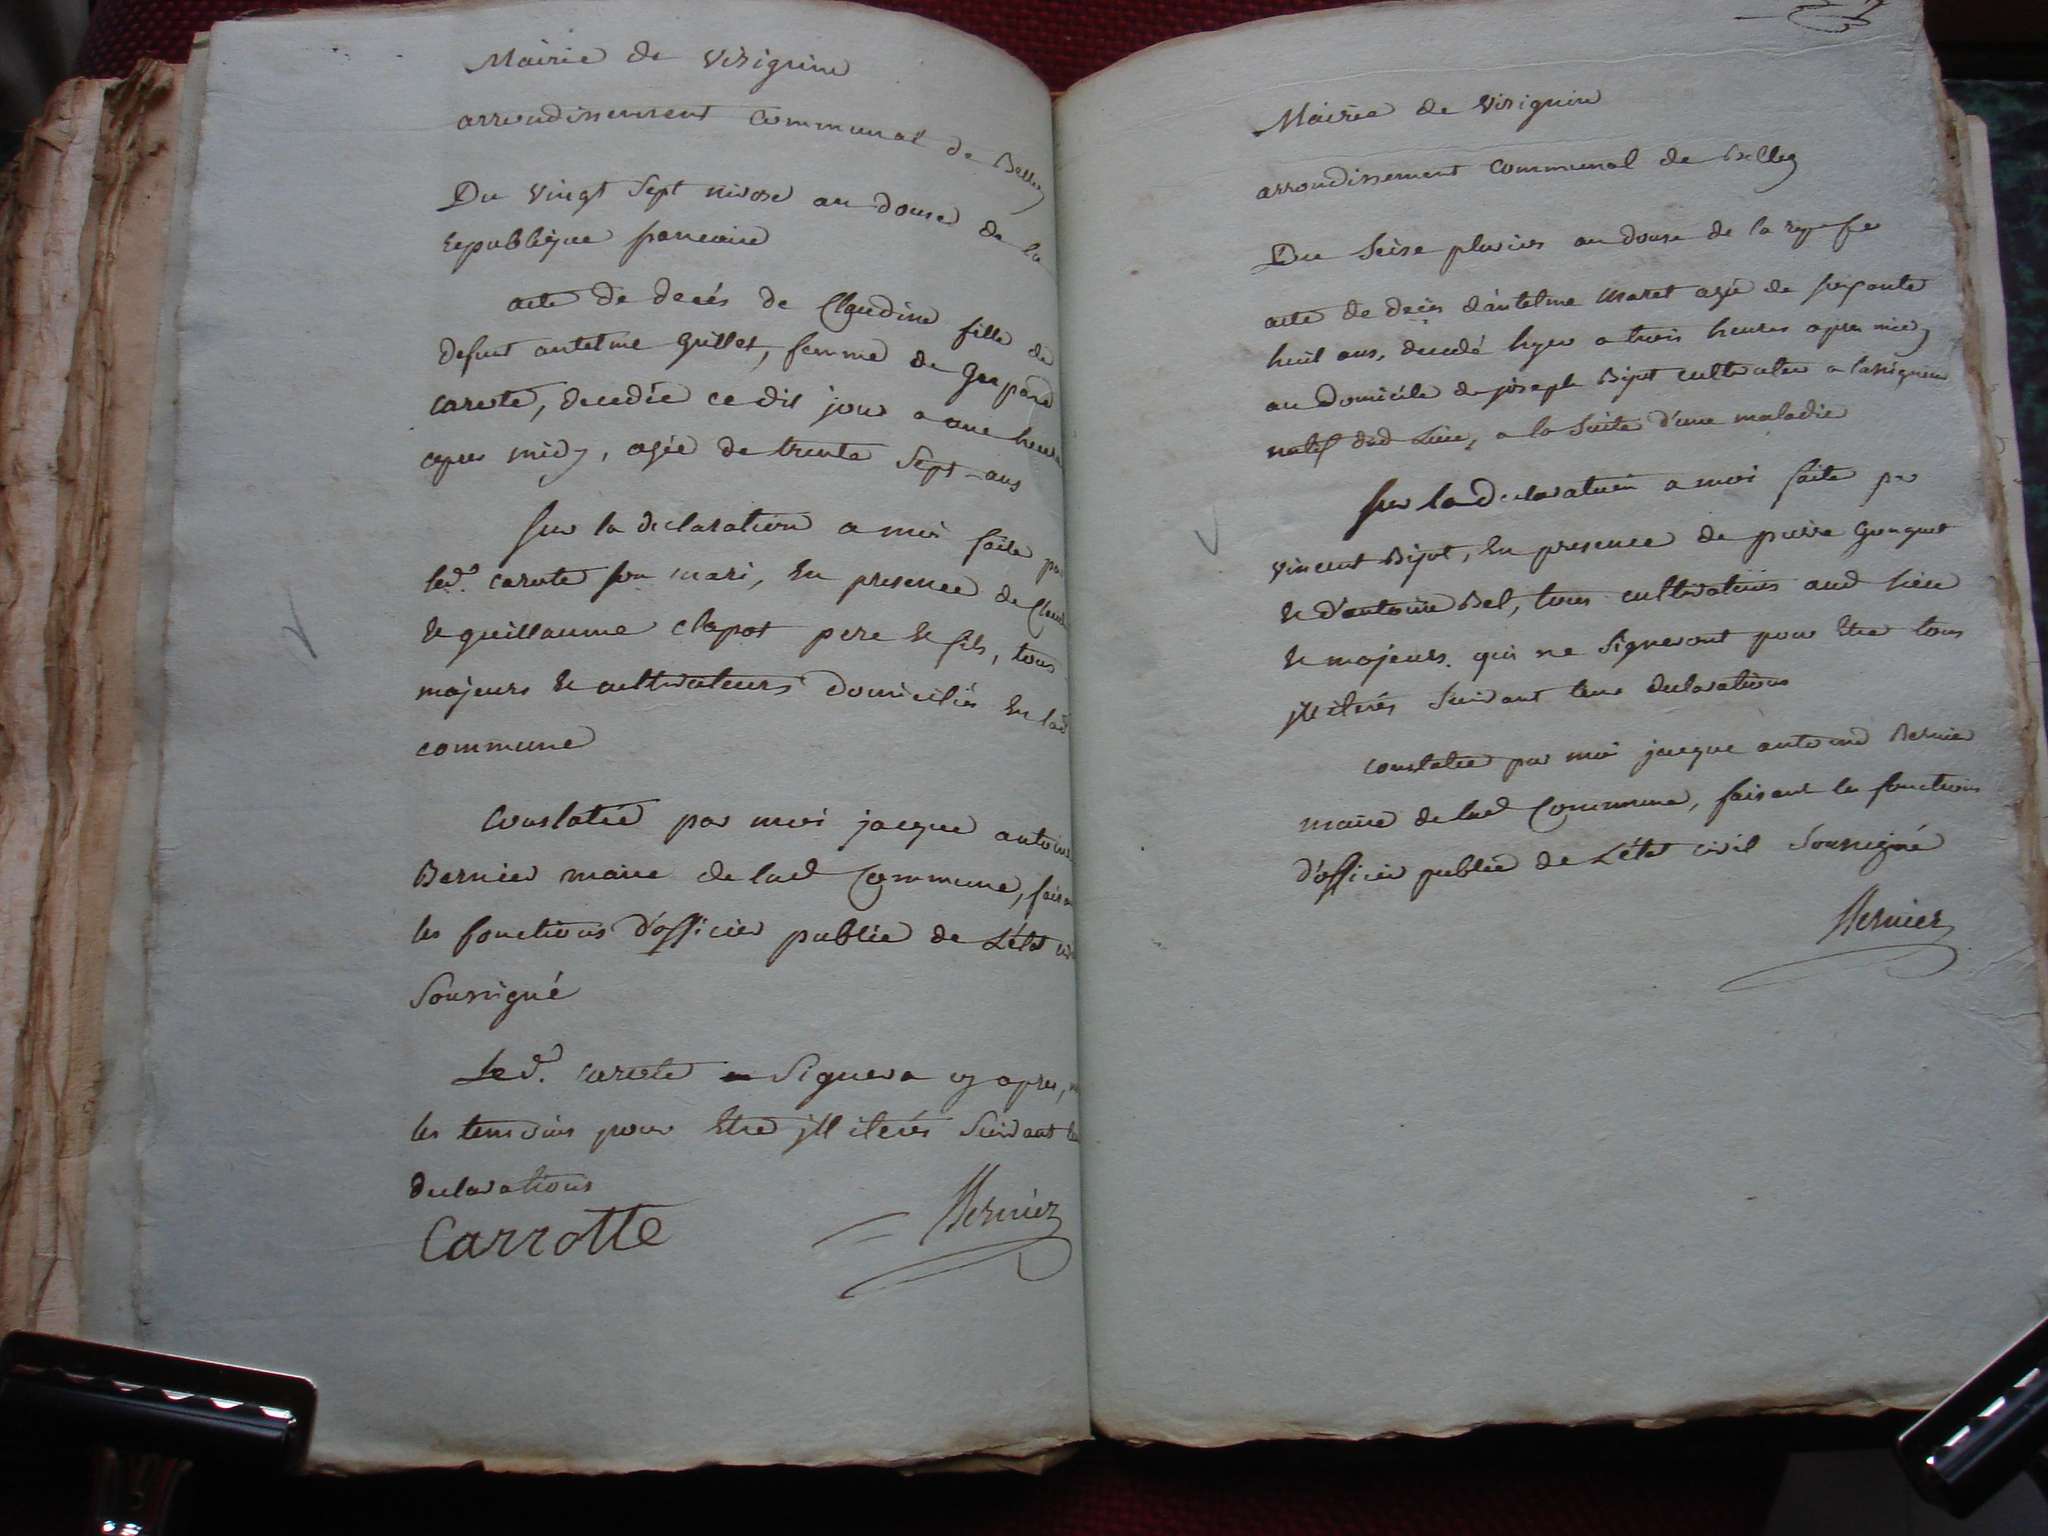 Mairie de virignin
arrondissement communal de Belley
Du vingt sept nivose an douse de la
republique francaise
acte de decés de Claudine fille de
defunt antelme Gullet, femme de Gaspard
carote, decedée ce dit jour a une heure
apres midy, agée de trente sept ans
sur la declaration a moi faite par
led. carote son mari, en presence de Claude
et guillaume clapot pere et fils, tous
majeurs et cultivateurs domiciliés en lad
commune
Constatée par moi jacque antoine
Bernier maire de lad Commune, faisant
les fonctions d'officier publice de L'état
Soussigné
Led. carote signera cy apres,
les temoins pour etre jlliterés suivant
declarations
Carrotte
Bernier
Mairie de virignin
arrondissement communal de Belley
Du seise pluvios an douse de la rep. fe
acte de decés d'antelme maret agé de soixante
huit ans, decedé hyer a trois heures apres midy
au domicile de joseph Bijot cultivateur a
natif dud Lieu, a la suite d'une maladie
sur la declaration a moi faite par
vincent Bijot, en presence de pierre
et d'antoine Bel, tous cultivateurs aud lieu
et majeurs. qui ne signeront pour etre tous
jlliterés suivant leur declarations
constatée par moi jacque antoine Bernier
maire de lad Commune, faisant les fonctions
d'officier publice de L'état civil soussigné
Bernier